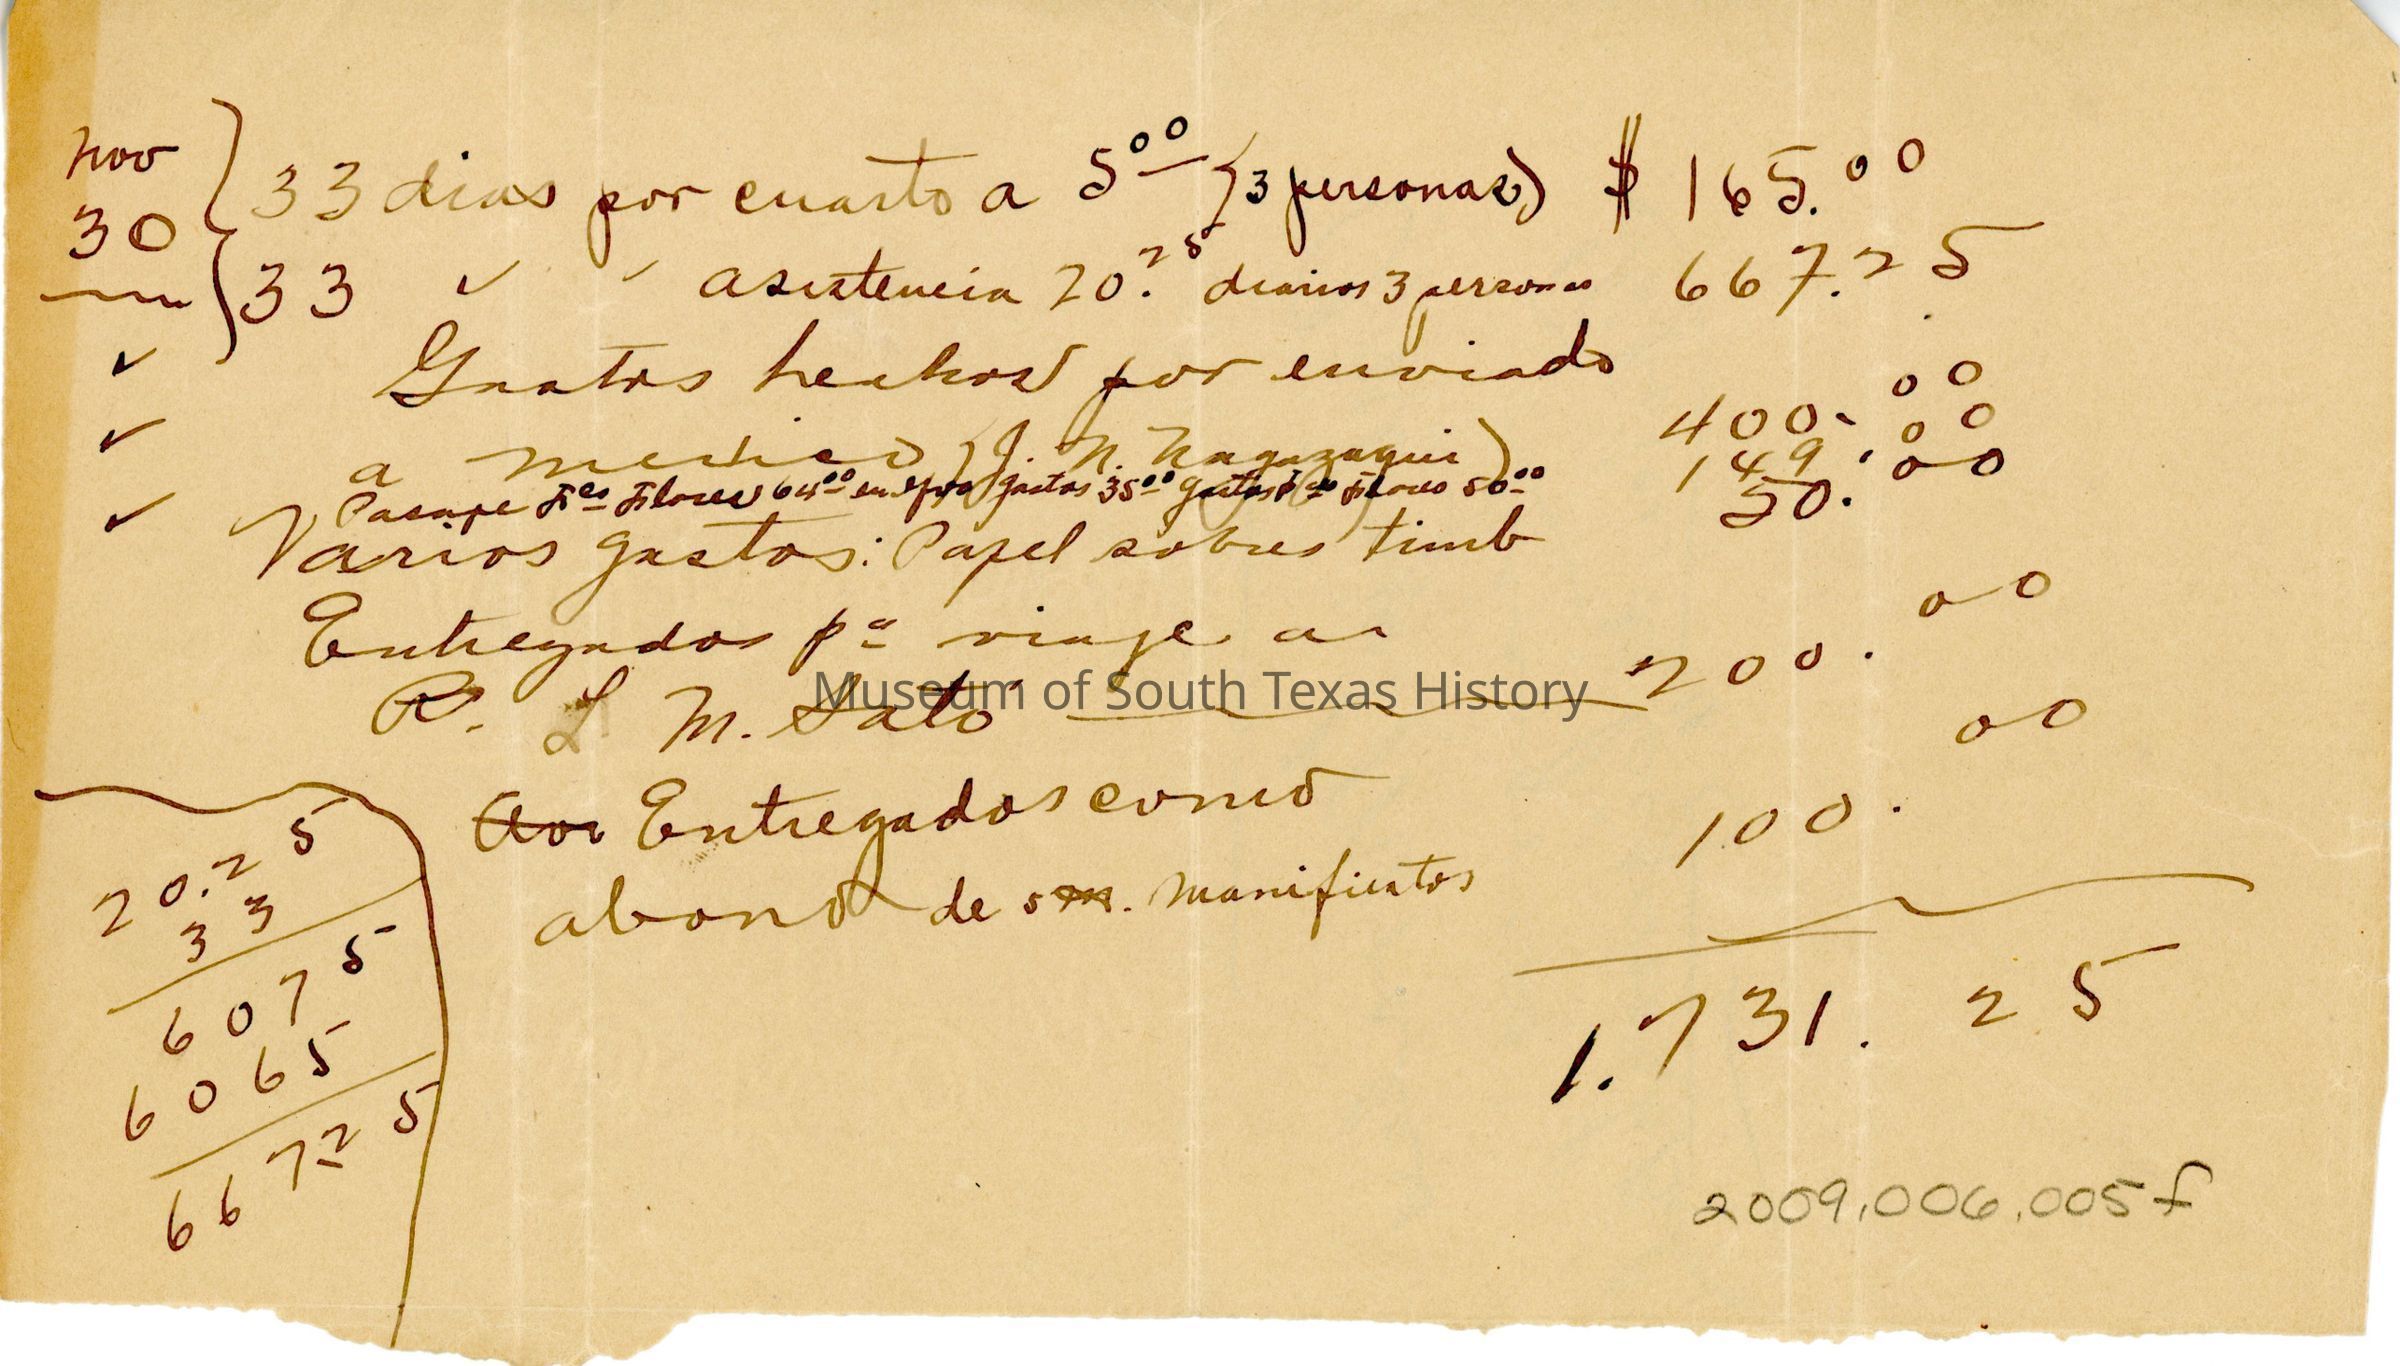 Nov
30
33 dias por cuarto a 5 00 (3 personas) $ 165.00
33 " " asistencia 20.25 diarios 3 personas 667.25
Gastos hechos por enviado
a Mexico (J. N. Nagazaqui) 400.00
Pasaje Fco Flores 64 00 gastos 35 00 gastos Fco Flores 50 00 149.00
Varios gastos: Papel sobres timb 50.00
Entregados pa viaje a
R. L M. Sato 200.00
Entregados como
abono de manifiestos 100.00
1.731.25
20.25
33
6075
6065
66725
2009.006.005f
Museum of South Texas History